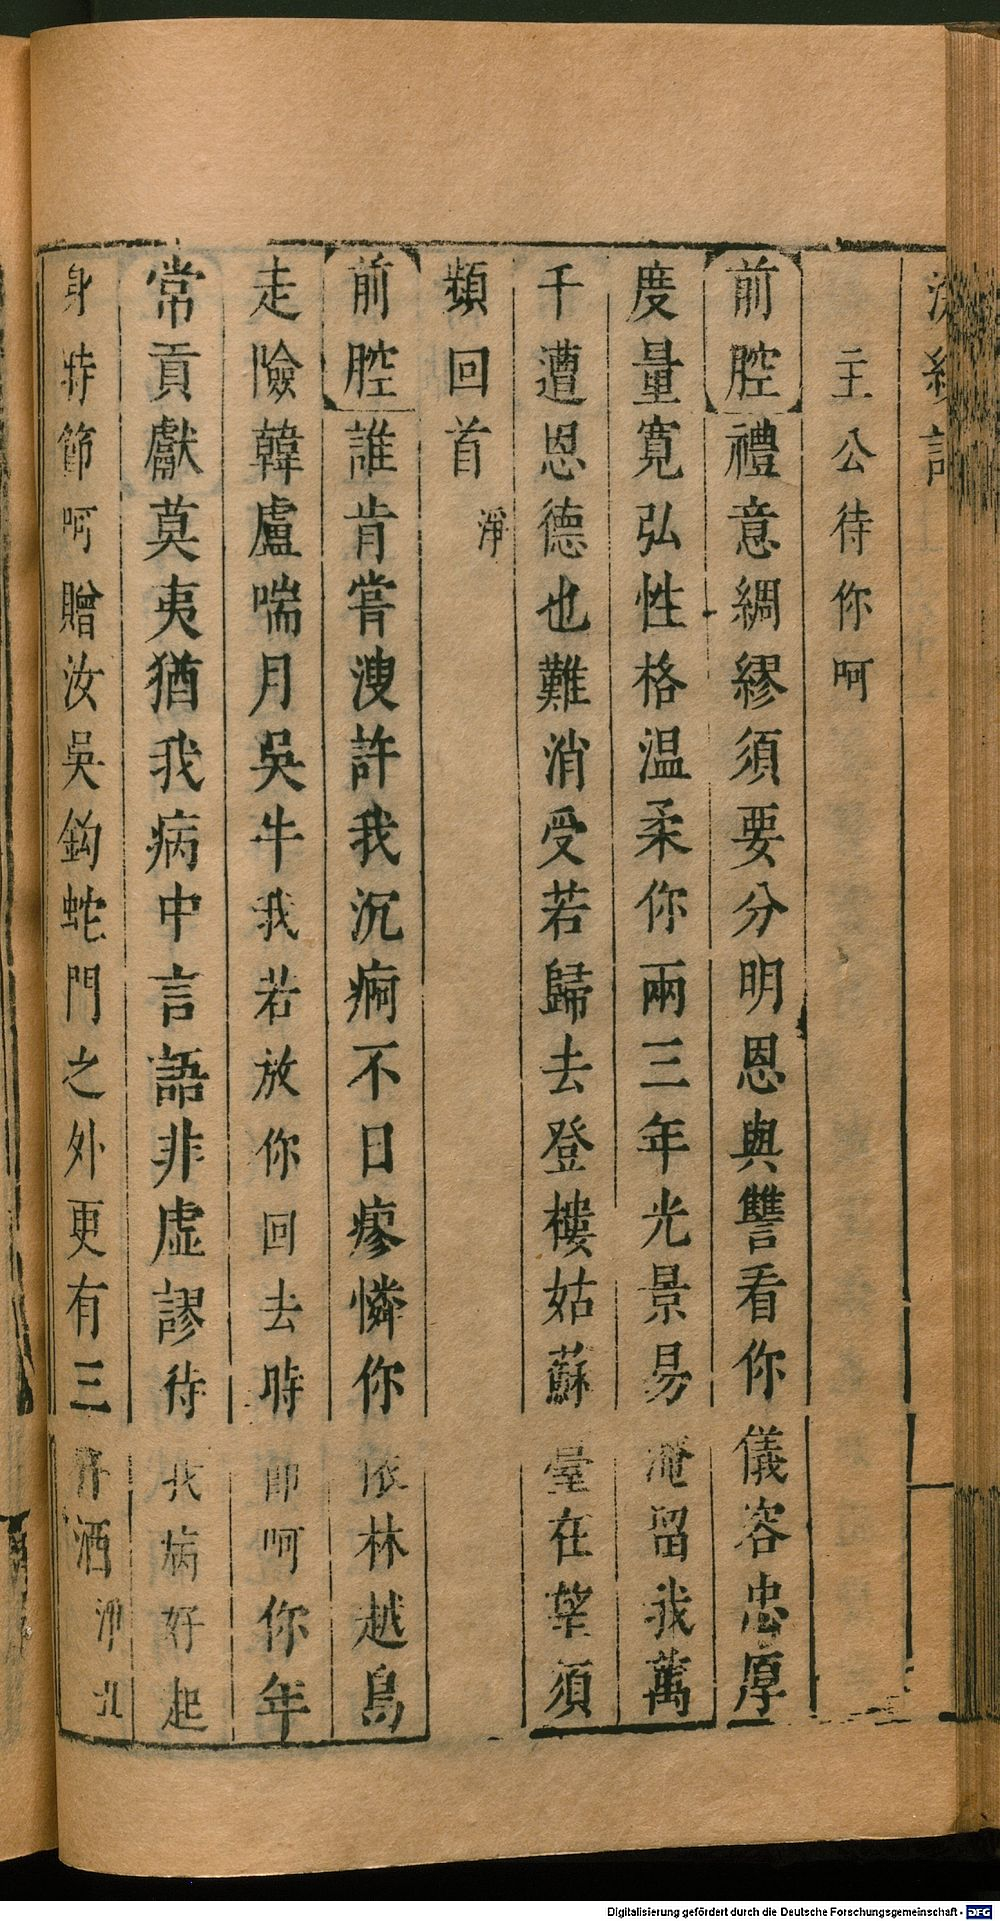 主公待你呵
前腔禮意綢繆須要分明恩與讐看你儀容忠厚
度量寬弘性格温柔你兩三年光景易淹留我萬
千遭恩德也難消受若歸去登樓姑蘇臺在望須
類回首 淨
前腔誰肯嘗溲許我沉痾不日瘳憐你依林越鳥
走險韓盧喘月吳牛我若放你回去時節呵你年
常貢獻莫夷猶我病中言語非虛謬待我病好起
身時節呵贈汝吳鈎蛇門之外更有三 酒
Digitalisierung gefördert durch die Deutsche Forschungsgemeinschaft - DFG